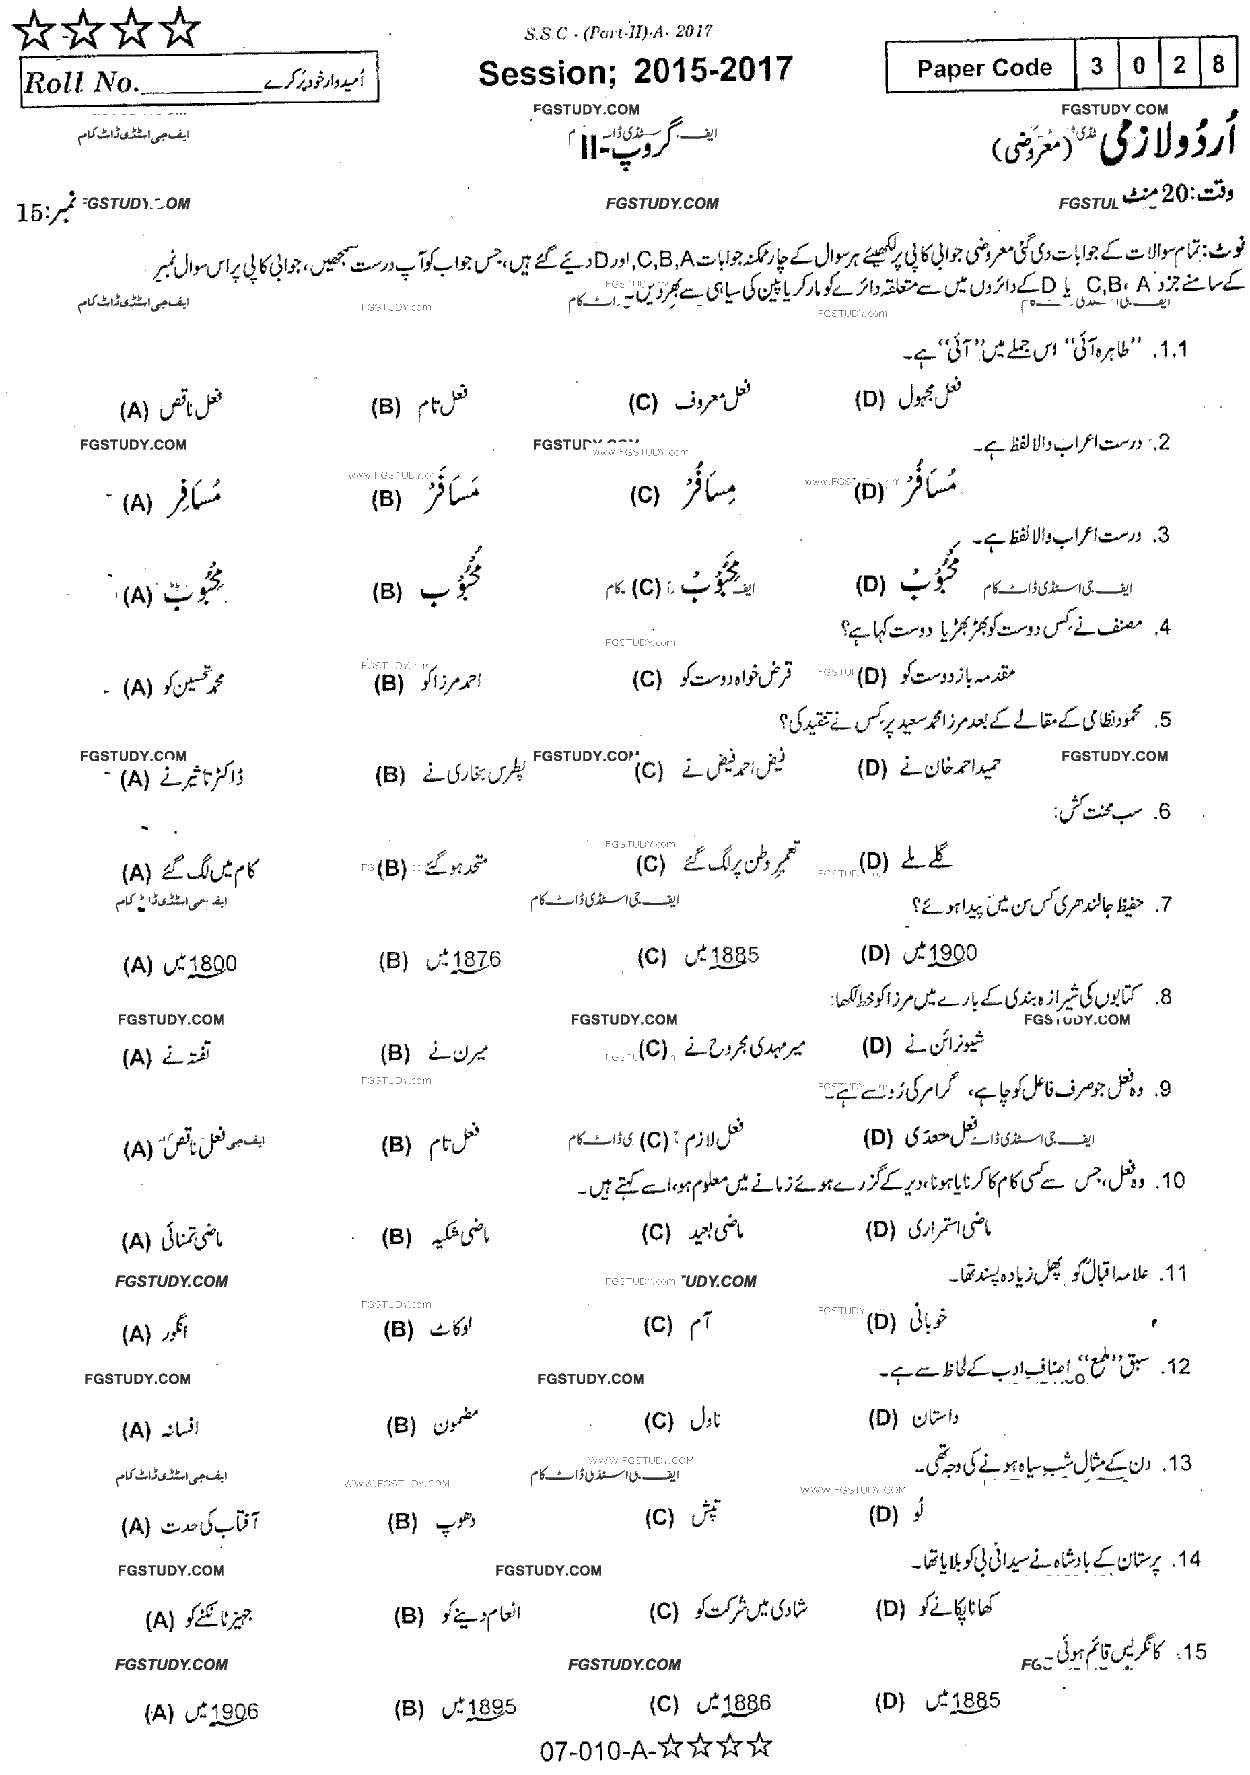 S.S.C - (Part-II)-A- 2017
Roll No.__________ اُمیدوار خود پُر کرے
Session; 2015-2017
Paper Code 3 0 2 8
FGSTUDY.COM FGSTUDY.COM
اُردُو لازمی (معروضی) گروپ-II ایف جی اسٹڈی ڈاٹ کام
وقت:20 منٹ FGSTUDY.COM نمبر:15
نوٹ: تمام سوالات کے جوابات دی گئی معروضی جوابی کاپی پر لکھیئے ہر سوال کے چار ممکنہ جوابات C,B,A اور D دیئے گئے ہیں، جس جواب کو آپ درست سمجھیں، جوابی کاپی پر اس سوال نمبر
کے سامنے جزد C,B، A یا D کے دائروں میں سے متعلقہ دائرے کو مارکر یا پین کی سیاہی سے بھر دیں۔
1.1. "طاہرہ آئی" اس جملے میں "آئی" ہے۔
(A) فعل ناقص (B) فعل تام (C) فعل معروف (D) فعل مجہول
2. درست اعراب والا لفظ ہے۔
(A) مُسَافِر (B) مَسَافَرْ (C) مِسَافُرْ (D) مُسَافُرْ
3. درست اعراب والا لفظ ہے۔
(A) (B) (C) (D)
4. مصنف نے کس دوست کو بھڑ بھڑیا دوست کہا ہے؟
(A) محمد تحسین کو (B) احمد مرزا کو (C) قرض خواہ دوست کو (D) مقدمہ باز دوست کو
5. محمود نظامی کے مقالے کے بعد مرزا محمد سعید پر کس نے تنقید کی؟
(A) ڈاکٹر تاثیر نے (B) پطرس بخاری نے (C) فیض احمد فیض نے (D) حمید احمد خان نے
6. سب محنت کش:
(A) کام میں لگ گئے (B) متحد ہو گئے (C) تعمیرِ وطن پر لگ گئے (D) گلے ملے
7. حفیظ جالندھری کس سن میں پیدا ہوئے؟
(A) 1800 میں (B) 1876 میں (C) 1885 میں (D) 1900 میں
8. کتابوں کی شیرازہ بندی کے بارے میں مرزا کو خط لکھا:
(A) تفتہ نے (B) میرن نے (C) میر مہدی مجروح نے (D) شیو نرائن نے
9. وہ فعل جو صرف فاعل کو چاہے، گرامر کی رُو سے ہے۔
(A) فعل ناقص (B) فعل تام (C) فعل لازم (D) فعل متعدی
10. وہ فعل، جس سے کسی کام کا کرنا یا ہونا، دیر کے گزرے ہوئے زمانے میں معلوم ہو، اسے کہتے ہیں۔
(A) ماضی تمنائی (B) ماضی شکیہ (C) ماضی بعید (D) ماضی استمراری
11. علامہ اقبالؒ کو پھل زیادہ پسند تھا۔
(A) انگور (B) لوکاٹ (C) آم (D) خوبانی
12. سبق "ملمع" اصنافِ ادب کے لحاظ سے ہے۔
(A) افسانہ (B) مضمون (C) ناول (D) داستان
13. دن کے مثال شب سیاہ ہونے کی وجہ تھی۔
(A) آفتاب کی حدت (B) دھوپ (C) تپش (D) لُو
14. پرستان کے بادشاہ نے سیدانی بی کو بلایا تھا۔
(A) جہیز ٹانکنے کو (B) انعام دینے کو (C) شادی میں شرکت کو (D) کھانا پکانے کو
15. کانگریس قائم ہوئی۔
(A) 1906 میں (B) 1895 میں (C) 1886 میں (D) 1885 میں
07-010-A-☆☆☆☆